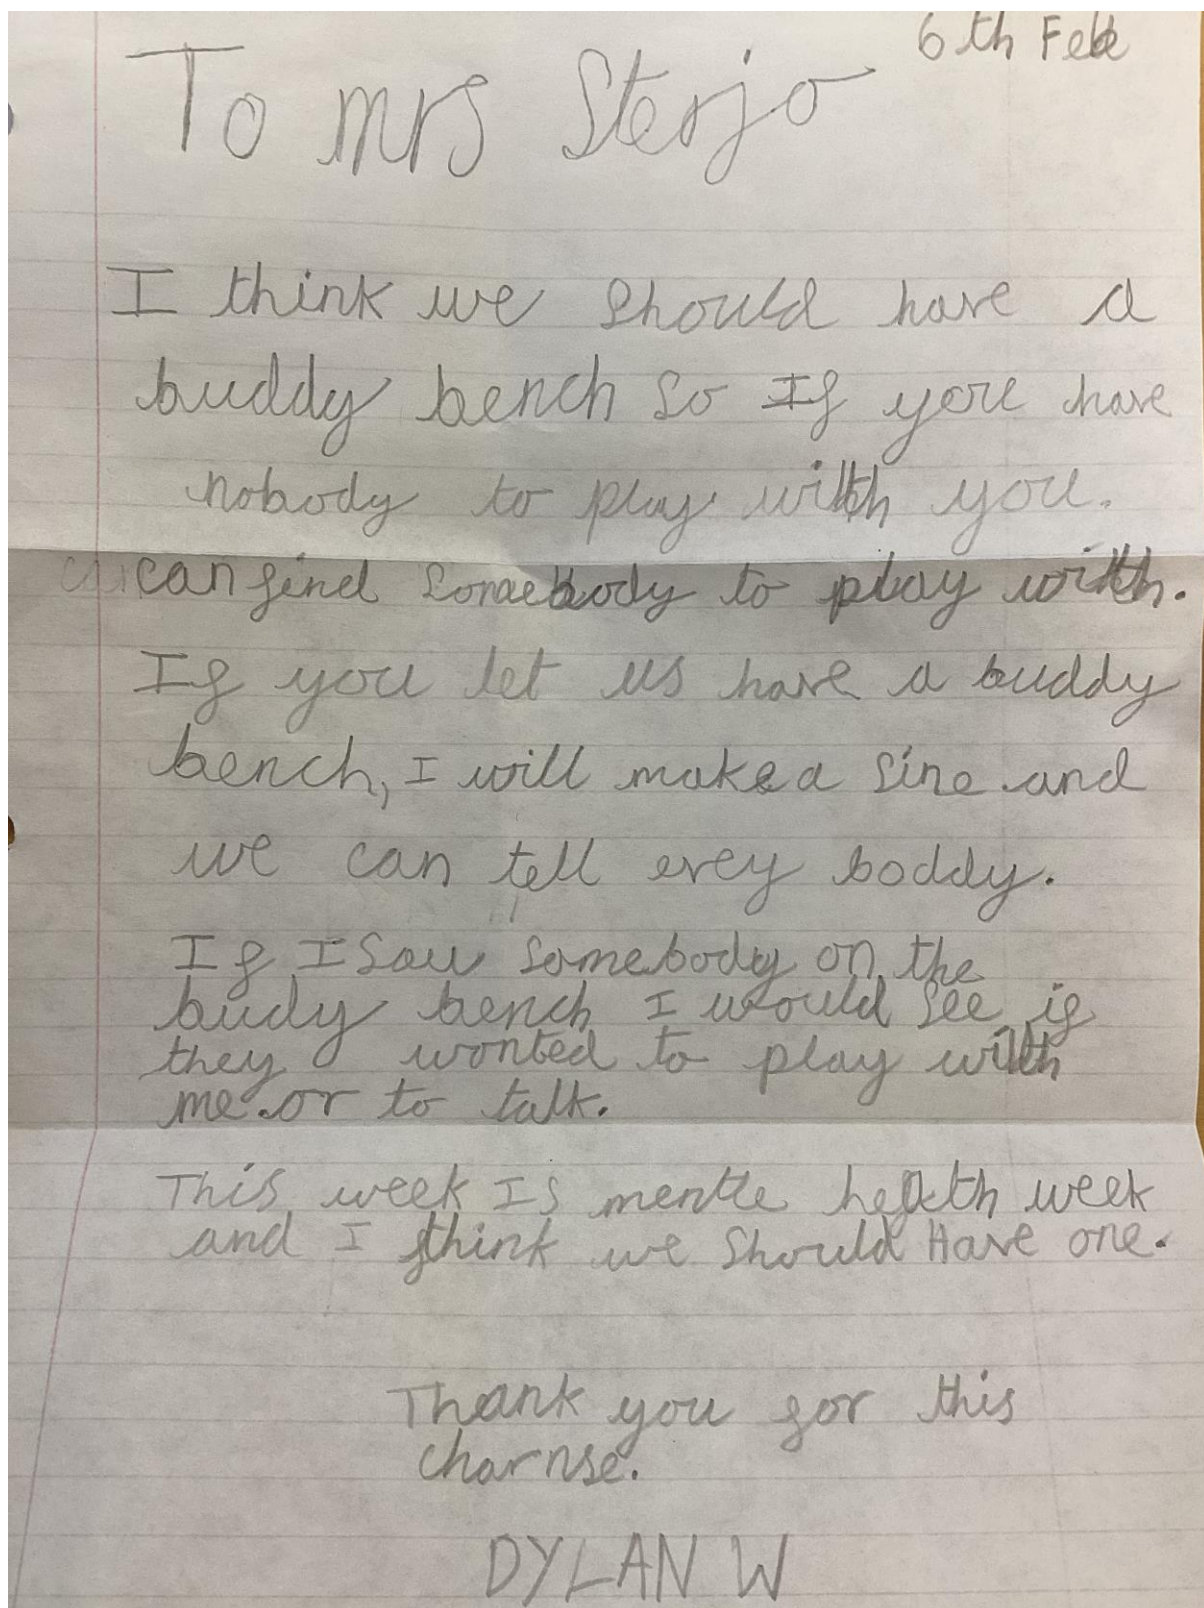 6th Feb
To Mrs Sterjo
I think we should have a
buddy bench so If you have
nobody to play with you.
can find somebody to play with.
If you let us have a buddy
bench, I will make a sine and
we can tell evey boddy.
If I saw somebody on the
budy bench I would see if
they wonted to play with
me.or to talk.
This week Is mentle health week
and I think we should Have one.
Thank you for this
charnse.
DYLAN W